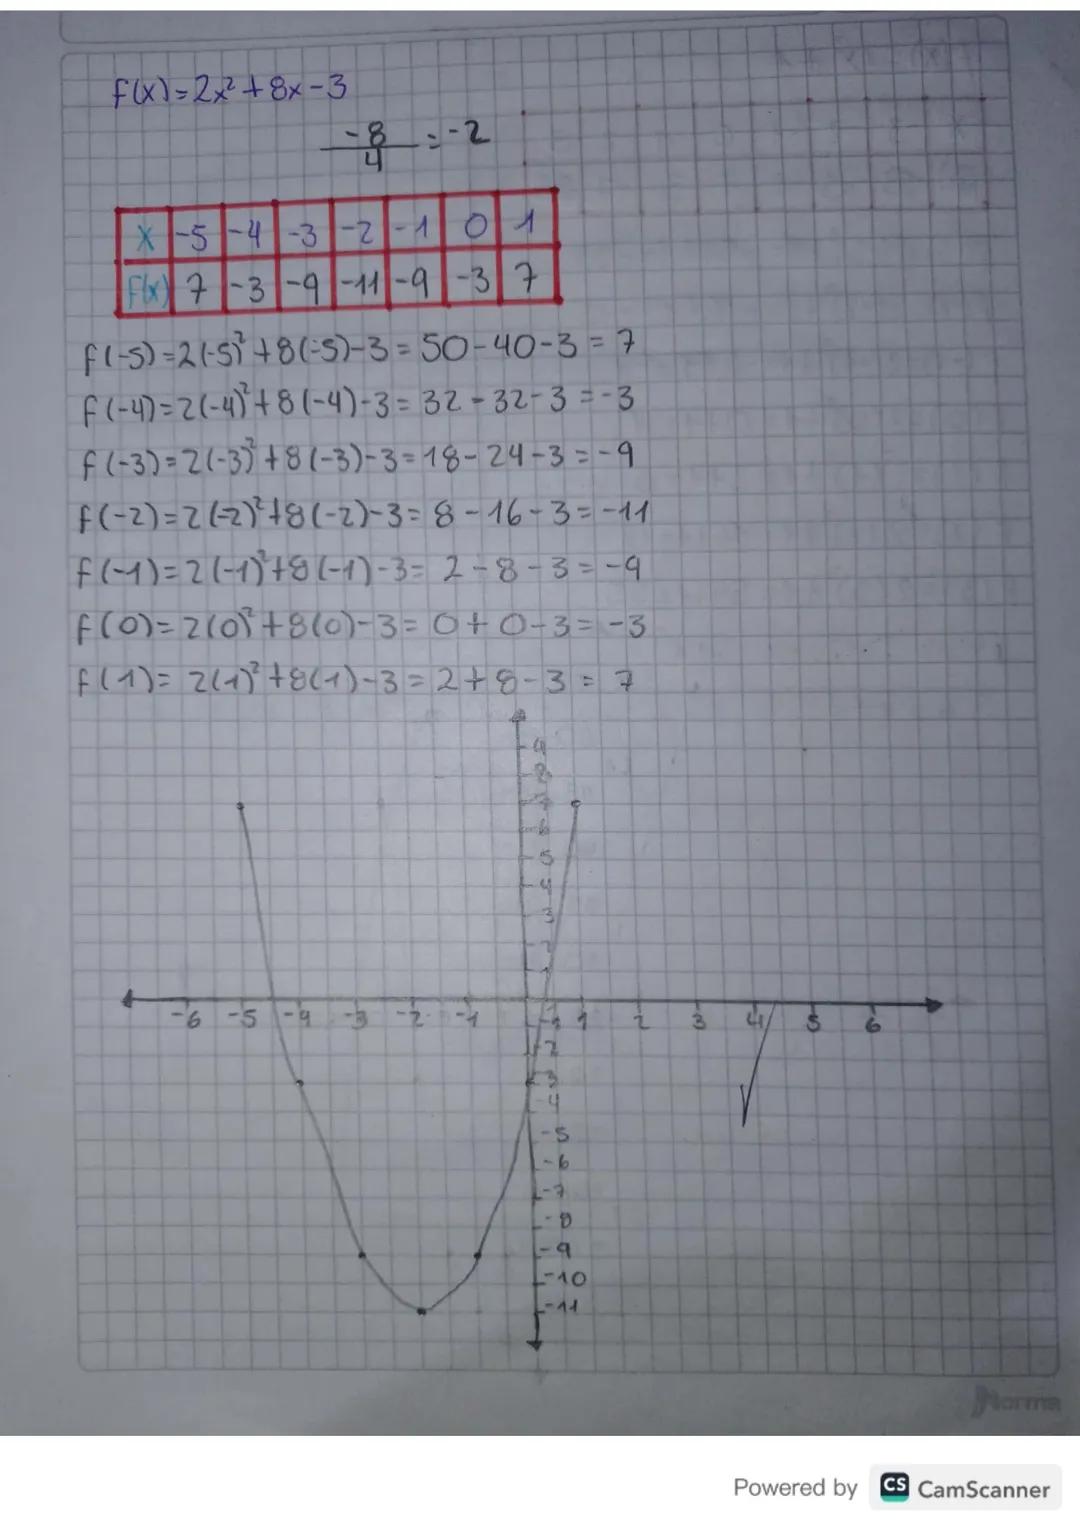 f(x)=2x²+8x-3
-8/4 = -2
x -5 -4 -3 -2 -1 0 1
f(x) 7 -3 -9 -11 -9 -3 7
f(-5)=2(-5)²+8(-5)-3=50-40-3=7
f(-4)=2(-4)²+8(-4)-3=32-32-3=-3
f(-3)=2(-3)²+8(-3)-3=18-24-3=-9
f(-2)=2(-2)²+8(-2)-3=8-16-3=-11
f(-1)=2(-1)²+8(-1)-3=2-8-3=-9
f(0)=2(0)²+8(0)-3=0+0-3=-3
f(1)=2(1)²+8(1)-3=2+8-3=7
9
8
7
6
5
4
3
2
1
-6 -5 -4 -3 -2 -1 1 2 3 4 5 6
-1
-2
-3
-4
-5
-6
-7
-8
-9
-10
-11
Norma
Powered by CS CamScanner